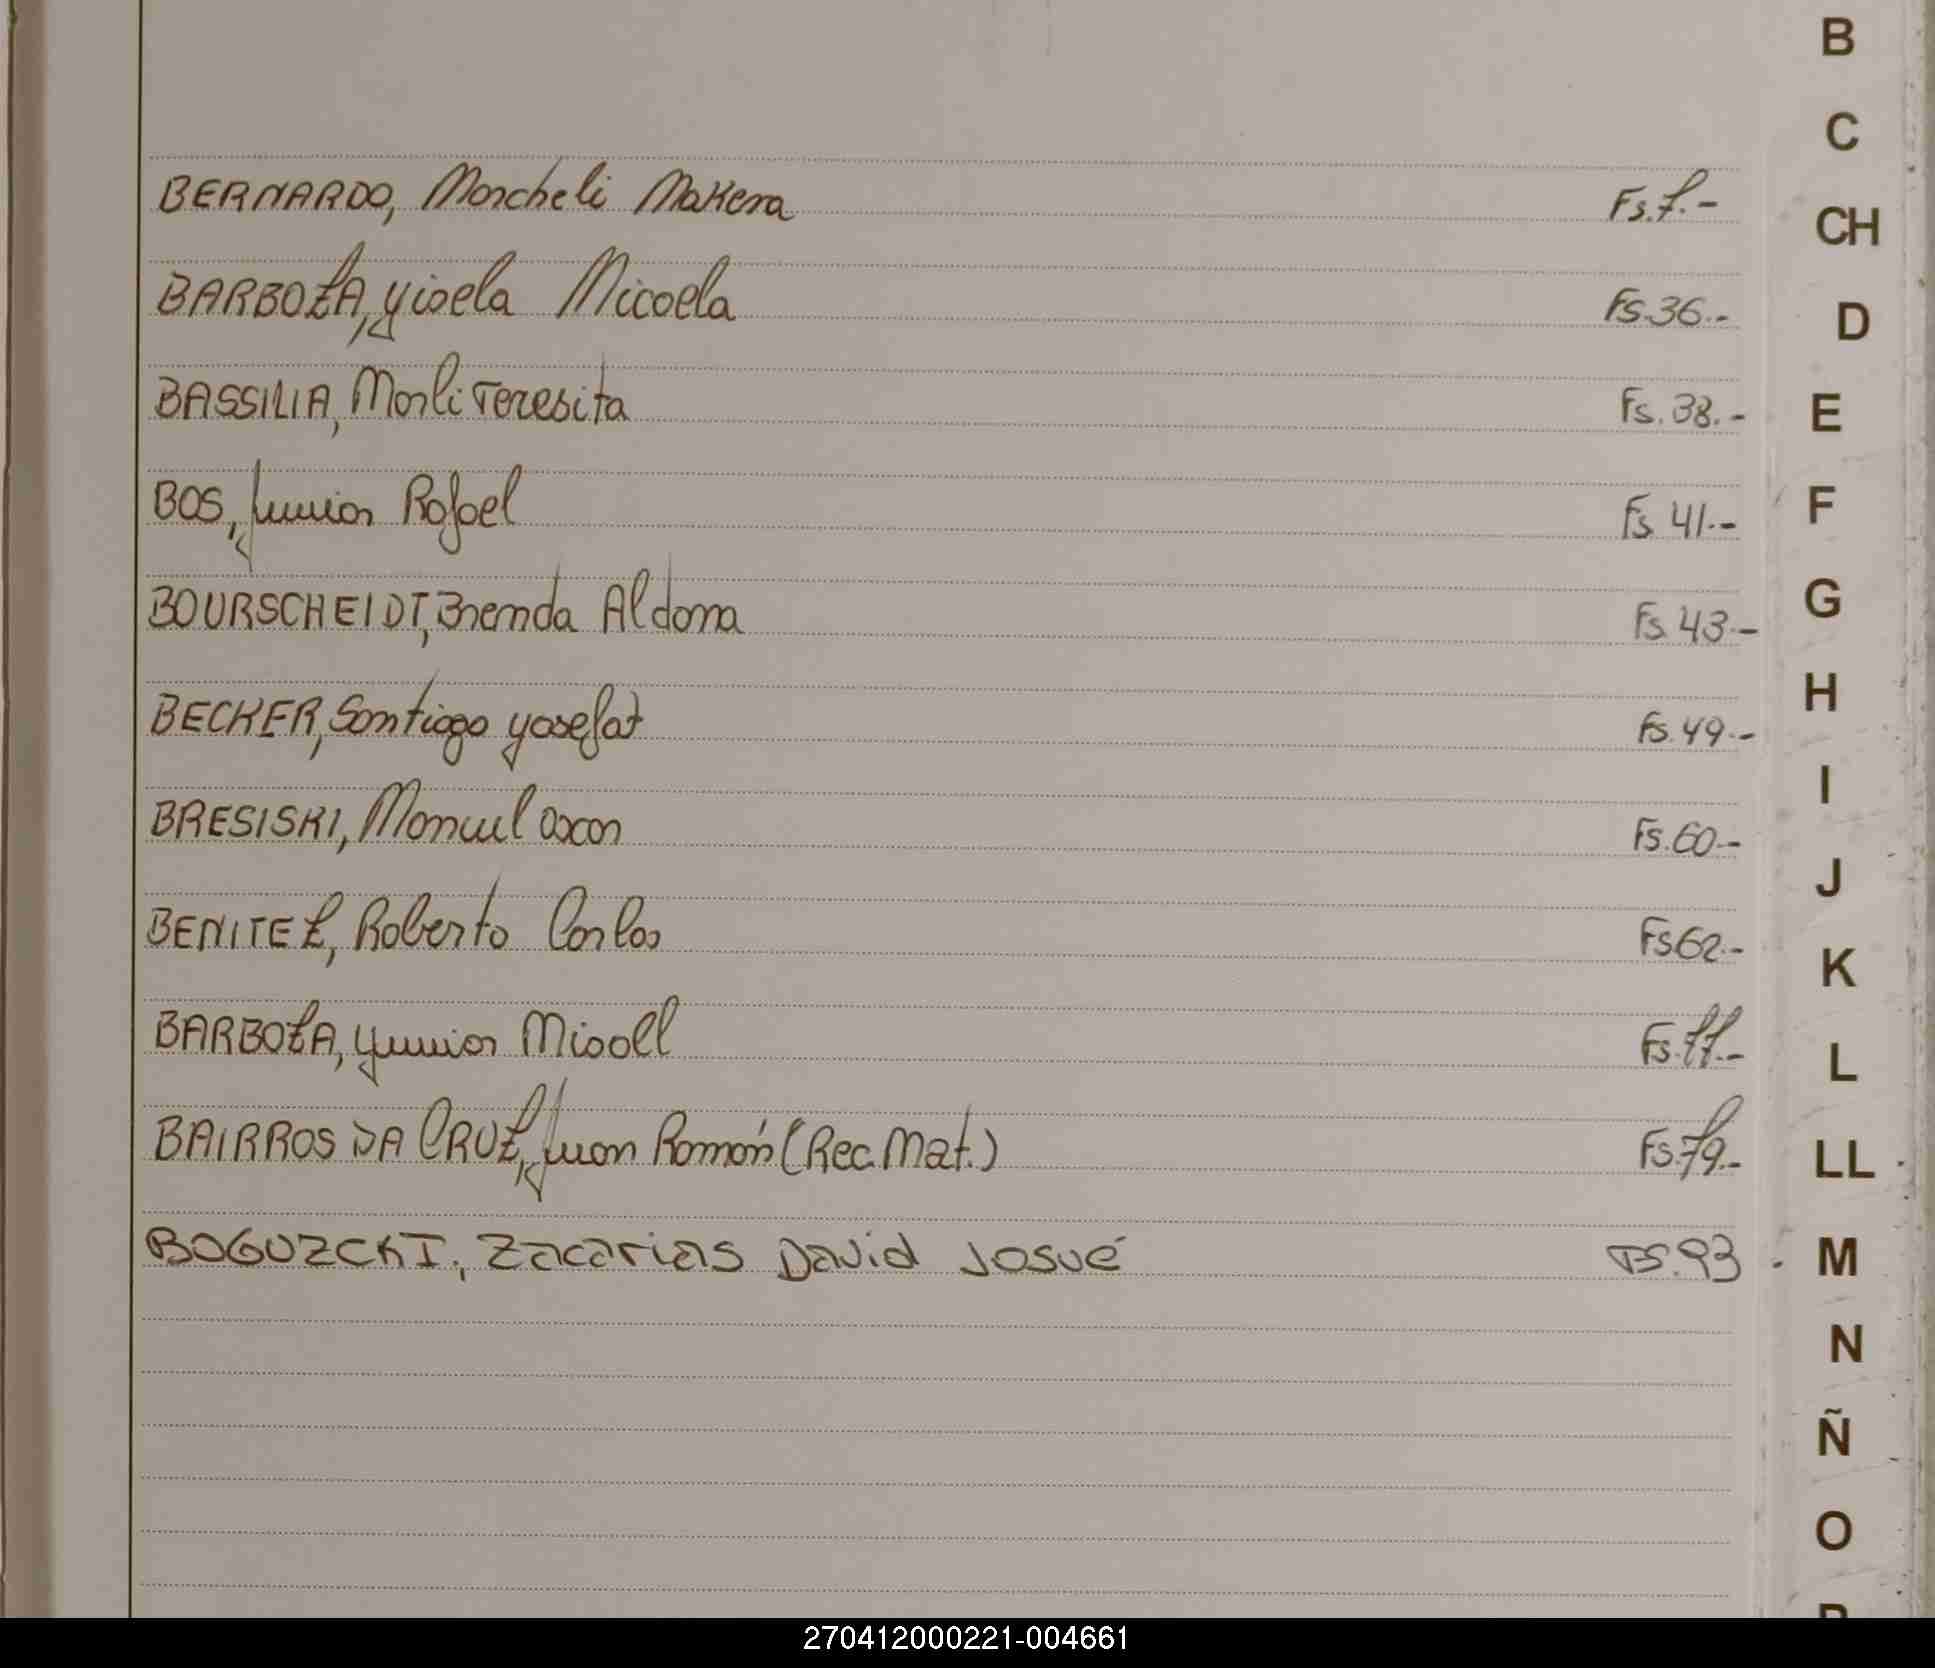 BERNARDO, Marcheli Makena Fs. 7.-
BARBOZA, Yisela Micaela Fs. 36.-
BASSILIA, Marli Teresita Fs. 38.-
BOS, Junior Rafael Fs. 41.-
BOURSCHEIDT, Brenda Aldana Fs. 43.-
BECKER, Santiago Yosefat Fs. 49.-
BRESISKI, Manuel Oscar Fs. 60.-
BENITEZ, Roberto Carlos Fs 62.-
BARBOZA, Yunior Misall Fs. 77.-
BAIRROS DA CRUZ, Juan Ramón (Rec. Mat.) Fs. 79.-
BOGUZCKI, Zacarias David Josué Fs. 93
B
C
CH
D
E
F
G
H
I
J
K
L
LL
M
N
Ñ
O
270412000221-004661